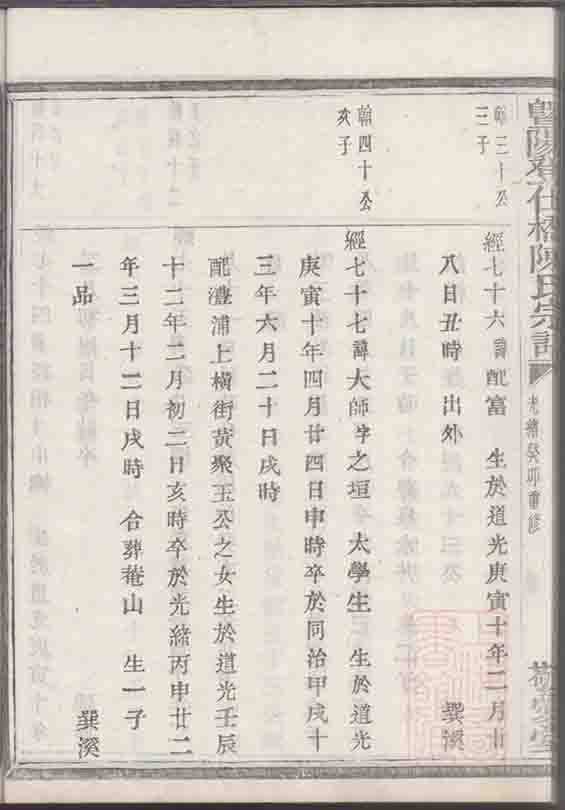 暨陽 仕橋陳氏宗譜 光緒癸卯重修
翰三十公
三子
經七十六諱配富 生於道光庚寅十年二月廿
八日丑時 出外 巽溪
翰四十公
亥子
經七十七諱大師字之垣 太學生 生於道光
庚寅十年四月廿四日申時卒於同治甲戌十
三年六月二十日戌時
配澧浦上橫街黃聚玉公之女生於道光壬辰
十二年二月初二日亥時卒於光緒丙申廿二
年三月十二日戌時 合葬菴山 生一子
一品 巽溪